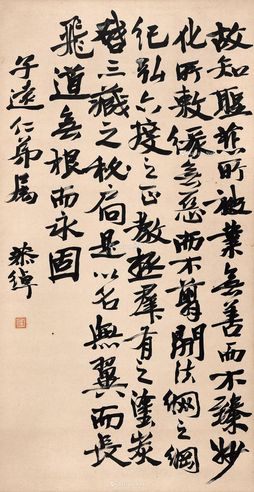 故知聖慈所被業無善而不臻妙
化所敷緣無惡而不翦開法網之綱
紀弘六度之正教拯羣有之塗炭
啓三藏之秘扃是以名無翼而長
飛道無根而永固
子遠仁弟屬